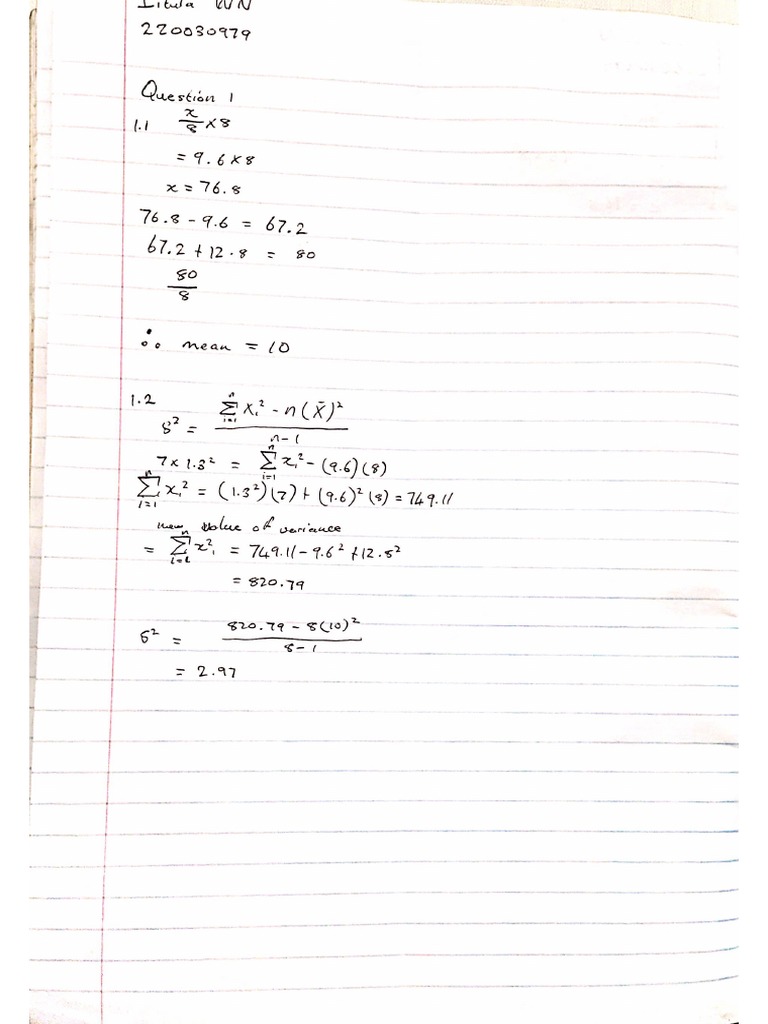 220030979
Question 1
1.1 x/8 × 8
= 9.6 × 8
x = 76.8
76.8 - 9.6 = 67.2
67.2 + 12.8 = 80
80/8
∴ mean = 10
1.2
s² = (Σᵢ₌₁ⁿ xᵢ² - n(x̄)²)/(n-1)
7 × 1.3² = Σᵢ₌₁ⁿ xᵢ² - (9.6)(8)
Σᵢ₌₁ⁿ xᵢ² = (1.3²)(7) + (9.6)²(8) = 749.11
new value of variance
= Σᵢ₌₁ⁿ xᵢ² = 749.11 - 9.6² + 12.8²
= 820.79
s² = (820.79 - 8(10)²)/(8-1)
= 2.97